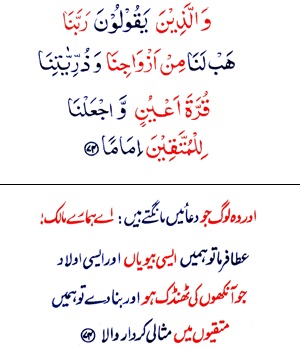 وَالَّذِيْنَ يَقُوْلُوْنَ رَبَّنَا
هَبْ لَنَا مِنْ اَزْوَاجِنَا وَ ذُرِّيّٰتِنَا
قُرَّةَ اَعْيُنٍ وَّ اجْعَلْنَا
لِلْمُتَّقِيْنَ اِمَامًا ﴿۷۴﴾
اور وہ لوگ جو دعائیں مانگتے ہیں: اے ہمارے مالک!
عطا فرما تو ہمیں ایسی بیویاں اور ایسی اولاد
جو آنکھوں کی ٹھنڈک ہو اور بنا دے تو ہمیں
متقیوں میں مثالی کردار والا ﴿۷۴﴾